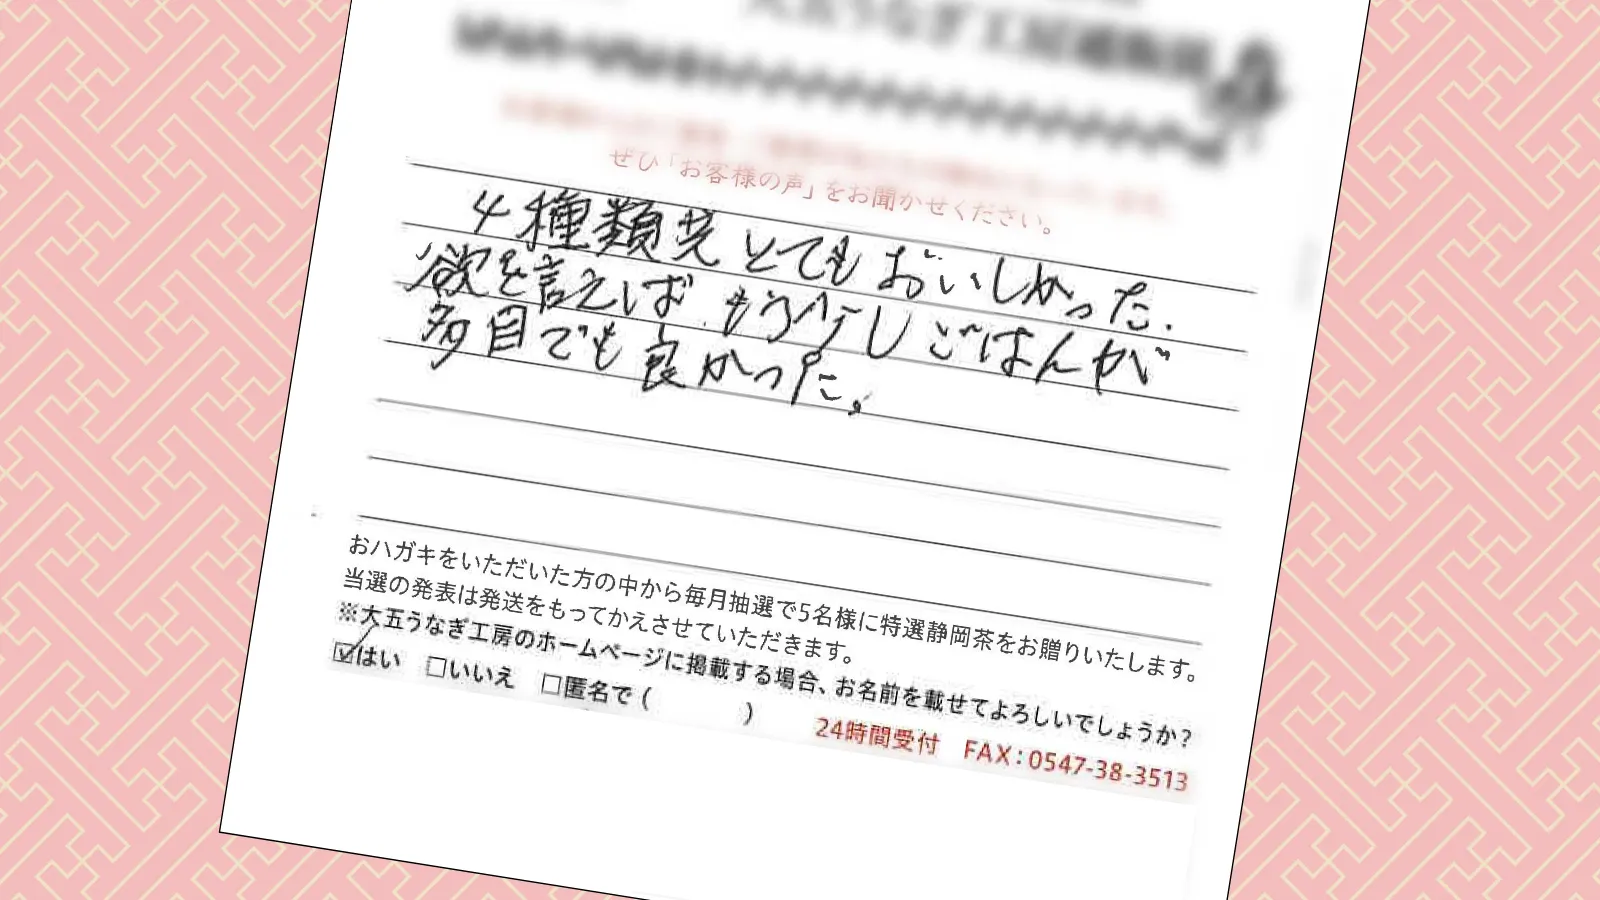 大五うなぎ工房通販部
ぜひ「お客様の声」をお聞かせください。
4種類共とてもおいしかった.
欲を言えばもう少しごはんが
多目でも良かった。
おハガキをいただいた方の中から毎月抽選で5名様に特選静岡茶をお贈りいたします。
当選の発表は発送をもってかえさせていただきます。
※大五うなぎ工房のホームページに掲載する場合、お名前を載せてよろしいでしょうか?
☑はい □いいえ □匿名で( )
24時間受付 FAX:0547-38-3513